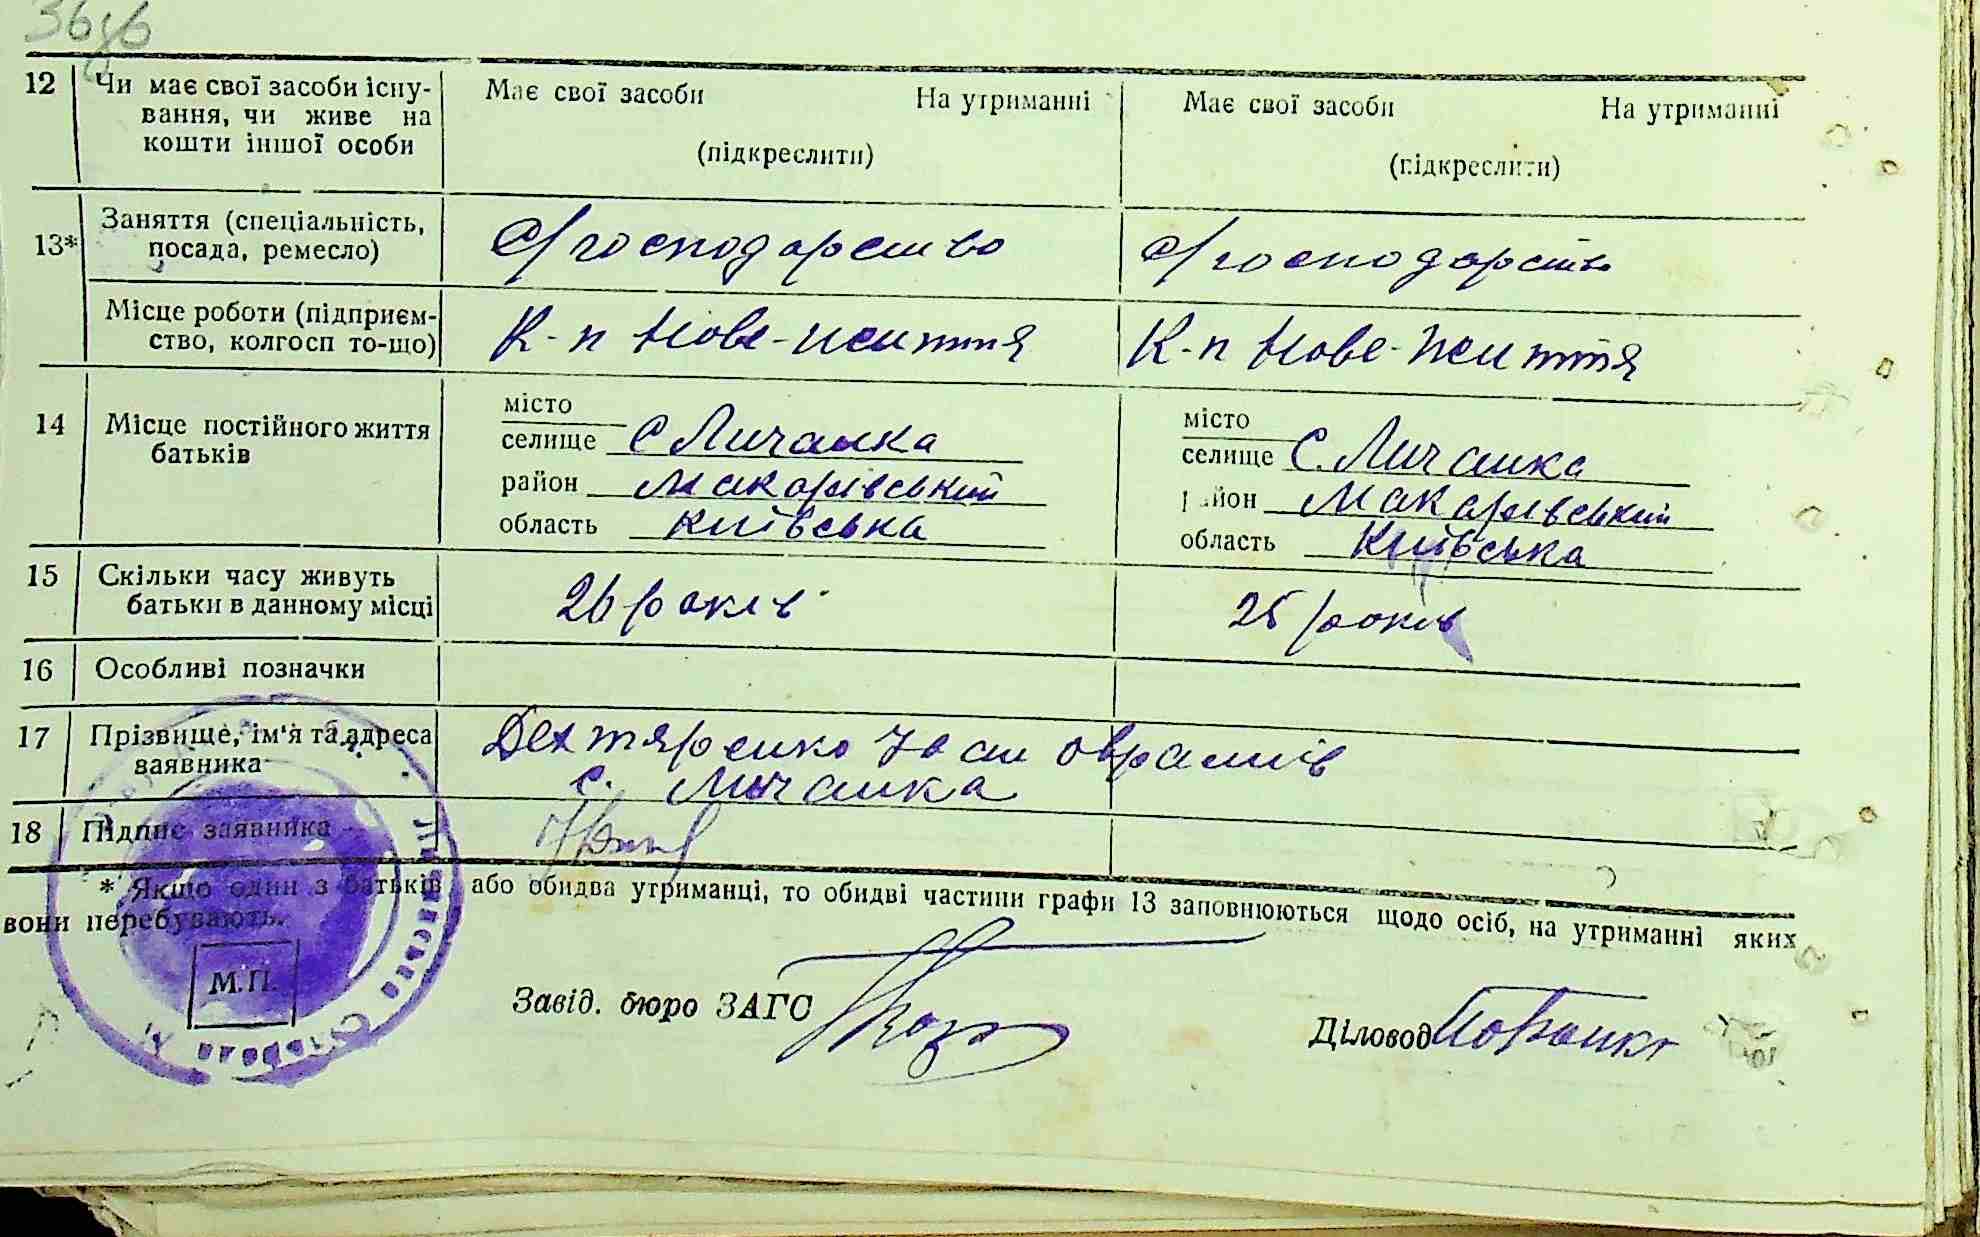 12 Чи має свої засоби існу- Має свої засоби На утриманні Має свої засоби На утриманні
вання, чи живе на
кошти іншої особи (підкреслити) (підкреслити)
13* Заняття (спеціальність, с/господарство с/господарство
посада, ремесло)
Місце роботи (підприєм- К-п Нове-життя К-п Нове-життя
ство, колгосп то-що)
місто місто
14 Місце постійного життя селище с Личанка селище с. Личанка
батьків район Макарівський район Макарівський
область київська область Київська
15 Скільки часу живуть 26 років 25 років
батьки в данному місці
16 Особливі позначки
17 Прізвище, ім'я та адреса Дехтяренко Іван
заявника с. Личанка
18 Підпис заявника
* Якщо один з батьків, або обидва утриманці, то обидві частини графи 13 заповнюються щодо осіб, на утриманні яких
вони перебувають.
М.П.
Завід. бюро ЗАГС
Діловод